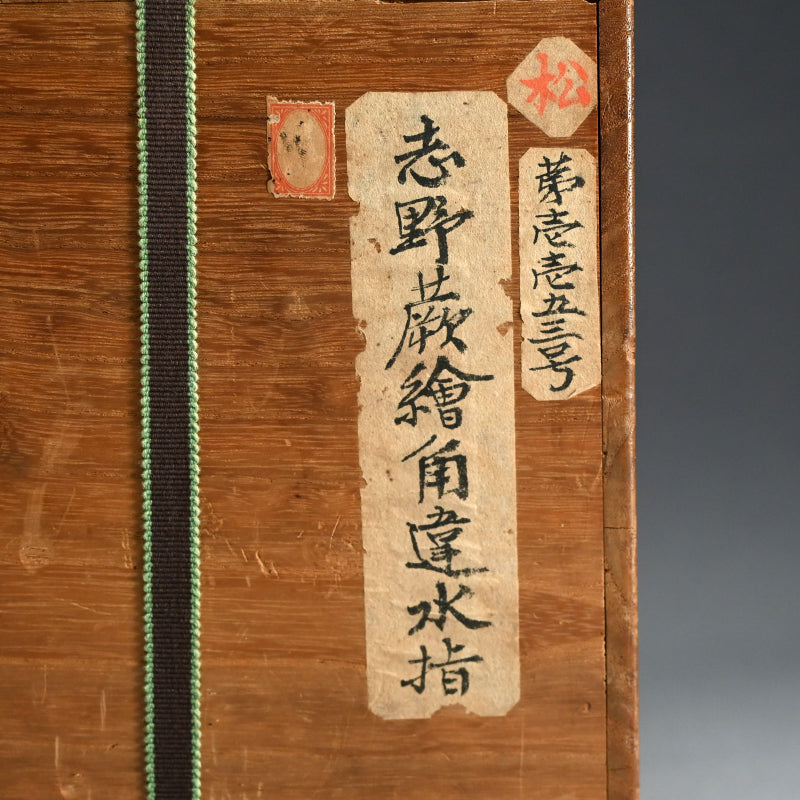 松
第壱壱五三号
志野蕨繪角違水指